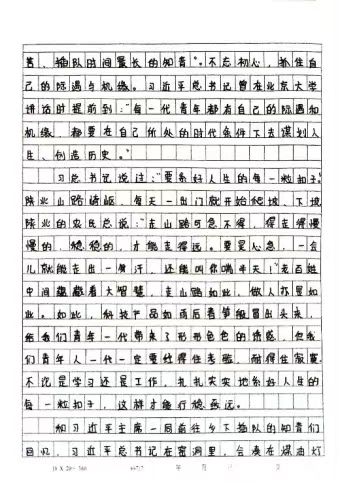 苦、插队时间最长的知青"。不忘初心，抓住自
己的际遇与机缘。习近平总书记曾在北京大学
讲话时提前到："每一代青年都有自己的际遇和
机缘，都要在自己所处的时代条件下去谋划人
生、创造历史。"
习总书记说过："要系好人生的每一粒扣子。"
陕北山路崎岖，每天一出门就开始爬坡、下坡
陕北的农民总说："走山路可急不得，得走得慢
慢的，稳稳的，才能走得远。要是心急，一会
儿就能走出一身汗，还能叫你喘半天！"老百姓
中间蕴藏着大智慧，走山路如此，做人亦是如
此。如此，科技产品如雨后春笋般冒出头来，
给我们青年一代带来了形形色色的诱惑，但我
们青年人一代一定要经得住考验，耐得住寂寞
不论是学习还是工作，扎扎实实地系好人生的
每一粒扣子，这样才能行稳致远。
和习近平主席一同前往乡下插队的知青们
回忆，习近平总书记在窑洞里，会凑在煤油灯
18×20=360 年 月 日 页